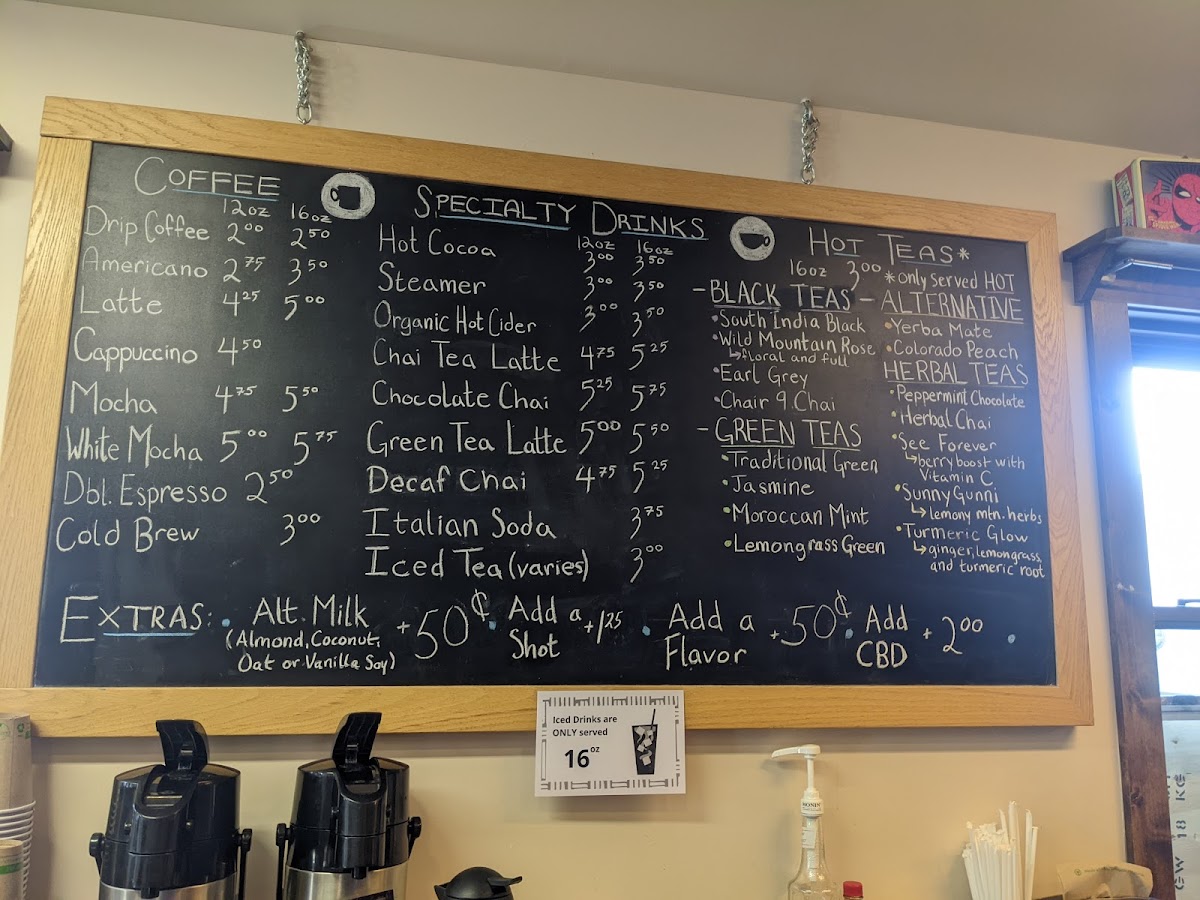 COFFEE
12oz 16oz
Drip Coffee 2.00 2.50
Americano 2.75 3.50
Latte 4.25 5.00
Cappuccino 4.50
Mocha 4.75 5.50
White Mocha 5.00 5.75
Dbl. Espresso 2.50
Cold Brew 3.00
SPECIALTY DRINKS
12oz 16oz
Hot Cocoa 3.00 3.50
Steamer 3.00 3.50
Organic Hot Cider 3.00 3.50
Chai Tea Latte 4.75 5.25
Chocolate Chai 5.25 5.75
Green Tea Latte 5.00 5.50
Decaf Chai 4.75 5.25
Italian Soda 3.75
Iced Tea (varies) 3.00
HOT TEAS*
16oz 3.00 *only served HOT
- BLACK TEAS -
•South India Black
•Wild Mountain Rose
↳floral and full
•Earl Grey
•Chair 9 Chai
- GREEN TEAS
•Traditional Green
•Jasmine
•Moroccan Mint
•Lemongrass Green
ALTERNATIVE
•Yerba Mate
•Colorado Peach
HERBAL TEAS
•Peppermint Chocolate
•Herbal Chai
•See Forever
↳berry boost with
Vitamin C
•Sunny Gunni
↳lemony mtn. herbs
•Turmeric Glow
↳ginger, lemongrass,
and turmeric root
EXTRAS: • Alt. Milk +50¢ • Add a +1.25 • Add a +50¢ • Add +2.00 •
(Almond, Coconut, Shot Flavor CBD
Oat or Vanilla Soy)
Iced Drinks are
ONLY served
16oz